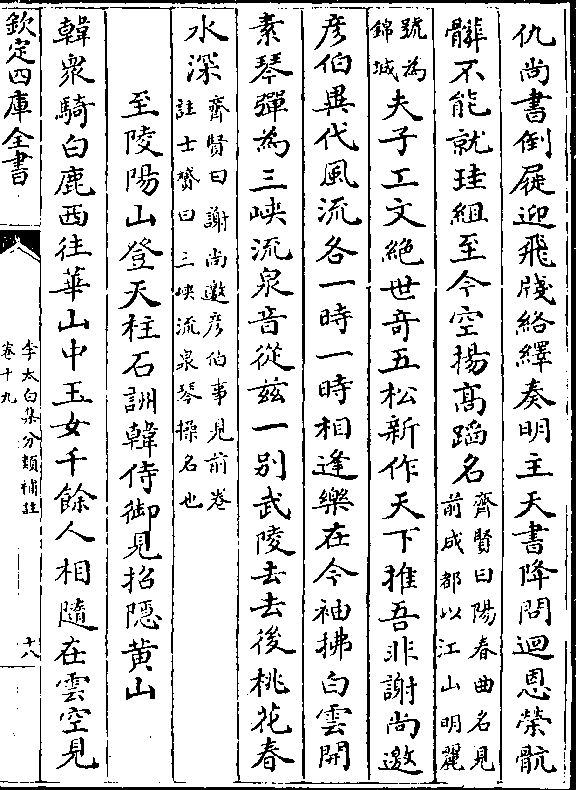 仇尚書倒屣迎飛牋絡繹奏明主天書降問迴恩榮骯
髒不能就珪組至今空揚髙蹈名
齊賢曰陽春曲名見
前成都以江山明麗
號為
錦城
夫子工文絶世竒五松新作天下推吾非謝尚邀
彦伯異代風流各一時一時相逢樂在今袖拂白雲開
素琴彈為三峽流泉音從兹一别武陵去去後桃花春
水深
齊賢曰謝尚邀彦伯事見前卷
註士贇曰三峽流泉琴操名也
至陵陽山登天柱石詶韓侍御見招隠黄山
韓衆騎白鹿西往華山中玉女千餘人相隨在雲空見
欽定四庫全書
李太白集分類補註
卷十九
十八